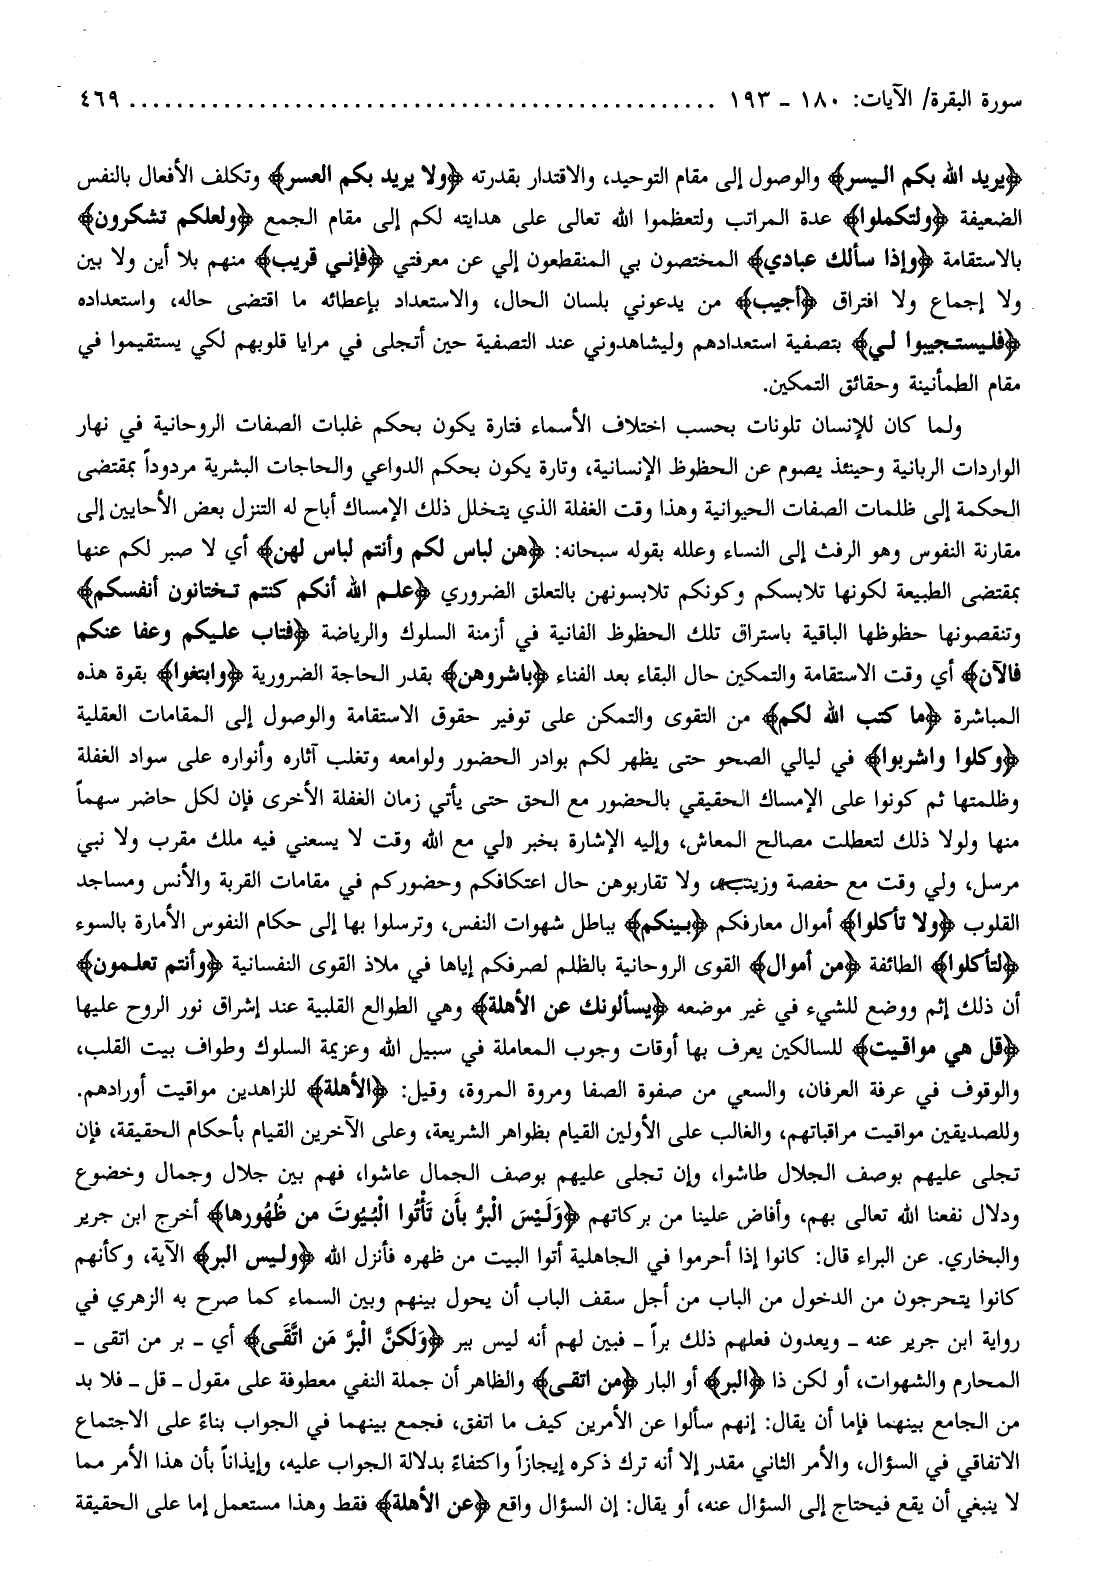 سورة البقرة/ الآيات: ١٨٠ - ١٩٣ ................................................ ٤٦٩
﴿يريد الله بكم اليسر﴾ والوصول إلى مقام التوحيد، والاقتدار بقدرته ﴿ولا يريد بكم العسر﴾ وتكلف الأفعال بالنفس
الضعيفة ﴿ولتكملوا﴾ عدة المراتب ولتعظموا الله تعالى على هدايته لكم إلى مقام الجمع ﴿ولعلكم تشكرون﴾
بالاستقامة ﴿وإذا سألك عبادي﴾ المختصون بي المنقطعون إلي عن معرفتي ﴿فإني قريب﴾ منهم بلا أين ولا بين
ولا إجماع ولا افتراق ﴿أجيب﴾ من يدعوني بلسان الحال، والاستعداد بإعطائه ما اقتضى حاله، واستعداده
﴿فليستجيبوا لي﴾ بتصفية استعدادهم وليشاهدوني عند التصفية حين أتجلى في مرايا قلوبهم لكي يستقيموا في
مقام الطمأنينة وحقائق التمكين.
ولما كان للإنسان تلونات بحسب اختلاف الأسماء فتارة يكون بحكم غلبات الصفات الروحانية في نهار
الواردات الربانية وحينئذ يصوم عن الحظوظ الإنسانية، وتارة يكون بحكم الدواعي والحاجات البشرية مردوداً بمقتضى
الحكمة إلى ظلمات الصفات الحيوانية وهذا وقت الغفلة الذي يتخلل ذلك الإمساك أباح له التنزل بعض الأحايين إلى
مقارنة النفوس وهو الرفث إلى النساء وعلله بقوله سبحانه: ﴿هن لباس لكم وأنتم لباس لهن﴾ أي لا صبر لكم عنها
بمقتضى الطبيعة لكونها تلابسكم وكونكم تلابسونهن بالتعلق الضروري ﴿علم الله أنكم كنتم تختانون أنفسكم﴾
وتنقصونها حظوظها الباقية باستراق تلك الحظوظ الفانية في أزمنة السلوك والرياضة ﴿فتاب عليكم وعفا عنكم
فالآن﴾ أي وقت الاستقامة والتمكين حال البقاء بعد الفناء ﴿باشروهن﴾ بقدر الحاجة الضرورية ﴿وابتغوا﴾ بقوة هذه
المباشرة ﴿ما كتب الله لكم﴾ من التقوى والتمكن على توفير حقوق الاستقامة والوصول إلى المقامات العقلية
﴿وكلوا واشربوا﴾ في ليالي الصحو حتى يظهر لكم بوادر الحضور ولوامعه وتغلب آثاره وأنواره على سواد الغفلة
وظلمتها ثم كونوا على الإمساك الحقيقي بالحضور مع الحق حتى يأتي زمان الغفلة الأخرى فإن لكل حاضر سهماً
منها ولولا ذلك لتعطلت مصالح المعاش، وإليه الإشارة بخبر «لي مع الله وقت لا يسعني فيه ملك مقرب ولا نبي
مرسل، ولي وقت مع حفصة وزينب» ولا تقاربوهن حال اعتكافكم وحضوركم في مقامات القربة والأنس ومساجد
القلوب ﴿ولا تأكلوا﴾ أموال معارفكم ﴿بينكم﴾ بباطل شهوات النفس، وترسلوا بها إلى حكام النفوس الأمارة بالسوء
﴿لتأكلوا﴾ الطائفة ﴿من أموال﴾ القوى الروحانية بالظلم لصرفكم إياها في ملاذ القوى النفسانية ﴿وأنتم تعلمون﴾
أن ذلك إثم ووضع للشيء في غير موضعه ﴿يسألونك عن الأهلة﴾ وهي الطوالع القلبية عند إشراق نور الروح عليها
﴿قل هي مواقيت﴾ للسالكين يعرف بها أوقات وجوب المعاملة في سبيل الله وعزيمة السلوك وطواف بيت القلب،
والوقوف في عرفة العرفان، والسعي من صفوة الصفا ومروة المروة، وقيل: ﴿الأهلة﴾ للزاهدين مواقيت أورادهم.
وللصديقين مواقيت مراقباتهم، والغالب على الأولين القيام بظواهر الشريعة، وعلى الآخرين القيام بأحكام الحقيقة، فإن
تجلى عليهم بوصف الجلال طاشوا، وإن تجلى عليهم بوصف الجمال عاشوا، فهم بين جلال وجمال وخضوع
ودلال نفعنا الله تعالى بهم، وأفاض علينا من بركاتهم ﴿وَلَيْسَ الْبرُّ بأَن تَأْتُوا الْبُيُوتَ من ظُهُورها﴾ أخرج ابن جرير
والبخاري. عن البراء قال: كانوا إذا أحرموا في الجاهلية أتوا البيت من ظهره فأنزل الله ﴿وليس البر﴾ الآية، وكأنهم
كانوا يتحرجون من الدخول من الباب من أجل سقف الباب أن يحول بينهم وبين السماء كما صرح به الزهري في
رواية ابن جرير عنه - ويعدون فعلهم ذلك براً - فبين لهم أنه ليس ببر ﴿وَلَكنَّ الْبرَّ مَن اتَّقَى﴾ أي - بر من اتقى -
المحارم والشهوات، أو لكن ذا ﴿البر﴾ أو البار ﴿من اتقى﴾ والظاهر أن جملة النفي معطوفة على مقول - قل - فلا بد
من الجامع بينهما فإما أن يقال: إنهم سألوا عن الأمرين كيف ما اتفق، فجمع بينهما في الجواب بناءً على الاجتماع
الاتفاقي في السؤال، والأمر الثاني مقدر إلا أنه ترك ذكره إيجازاً واكتفاءً بدلالة الجواب عليه، وإيذاناً بأن هذا الأمر مما
لا ينبغي أن يقع فيحتاج إلى السؤال عنه، أو يقال: إن السؤال واقع ﴿عن الأهلة﴾ فقط وهذا مستعمل إما على الحقيقة